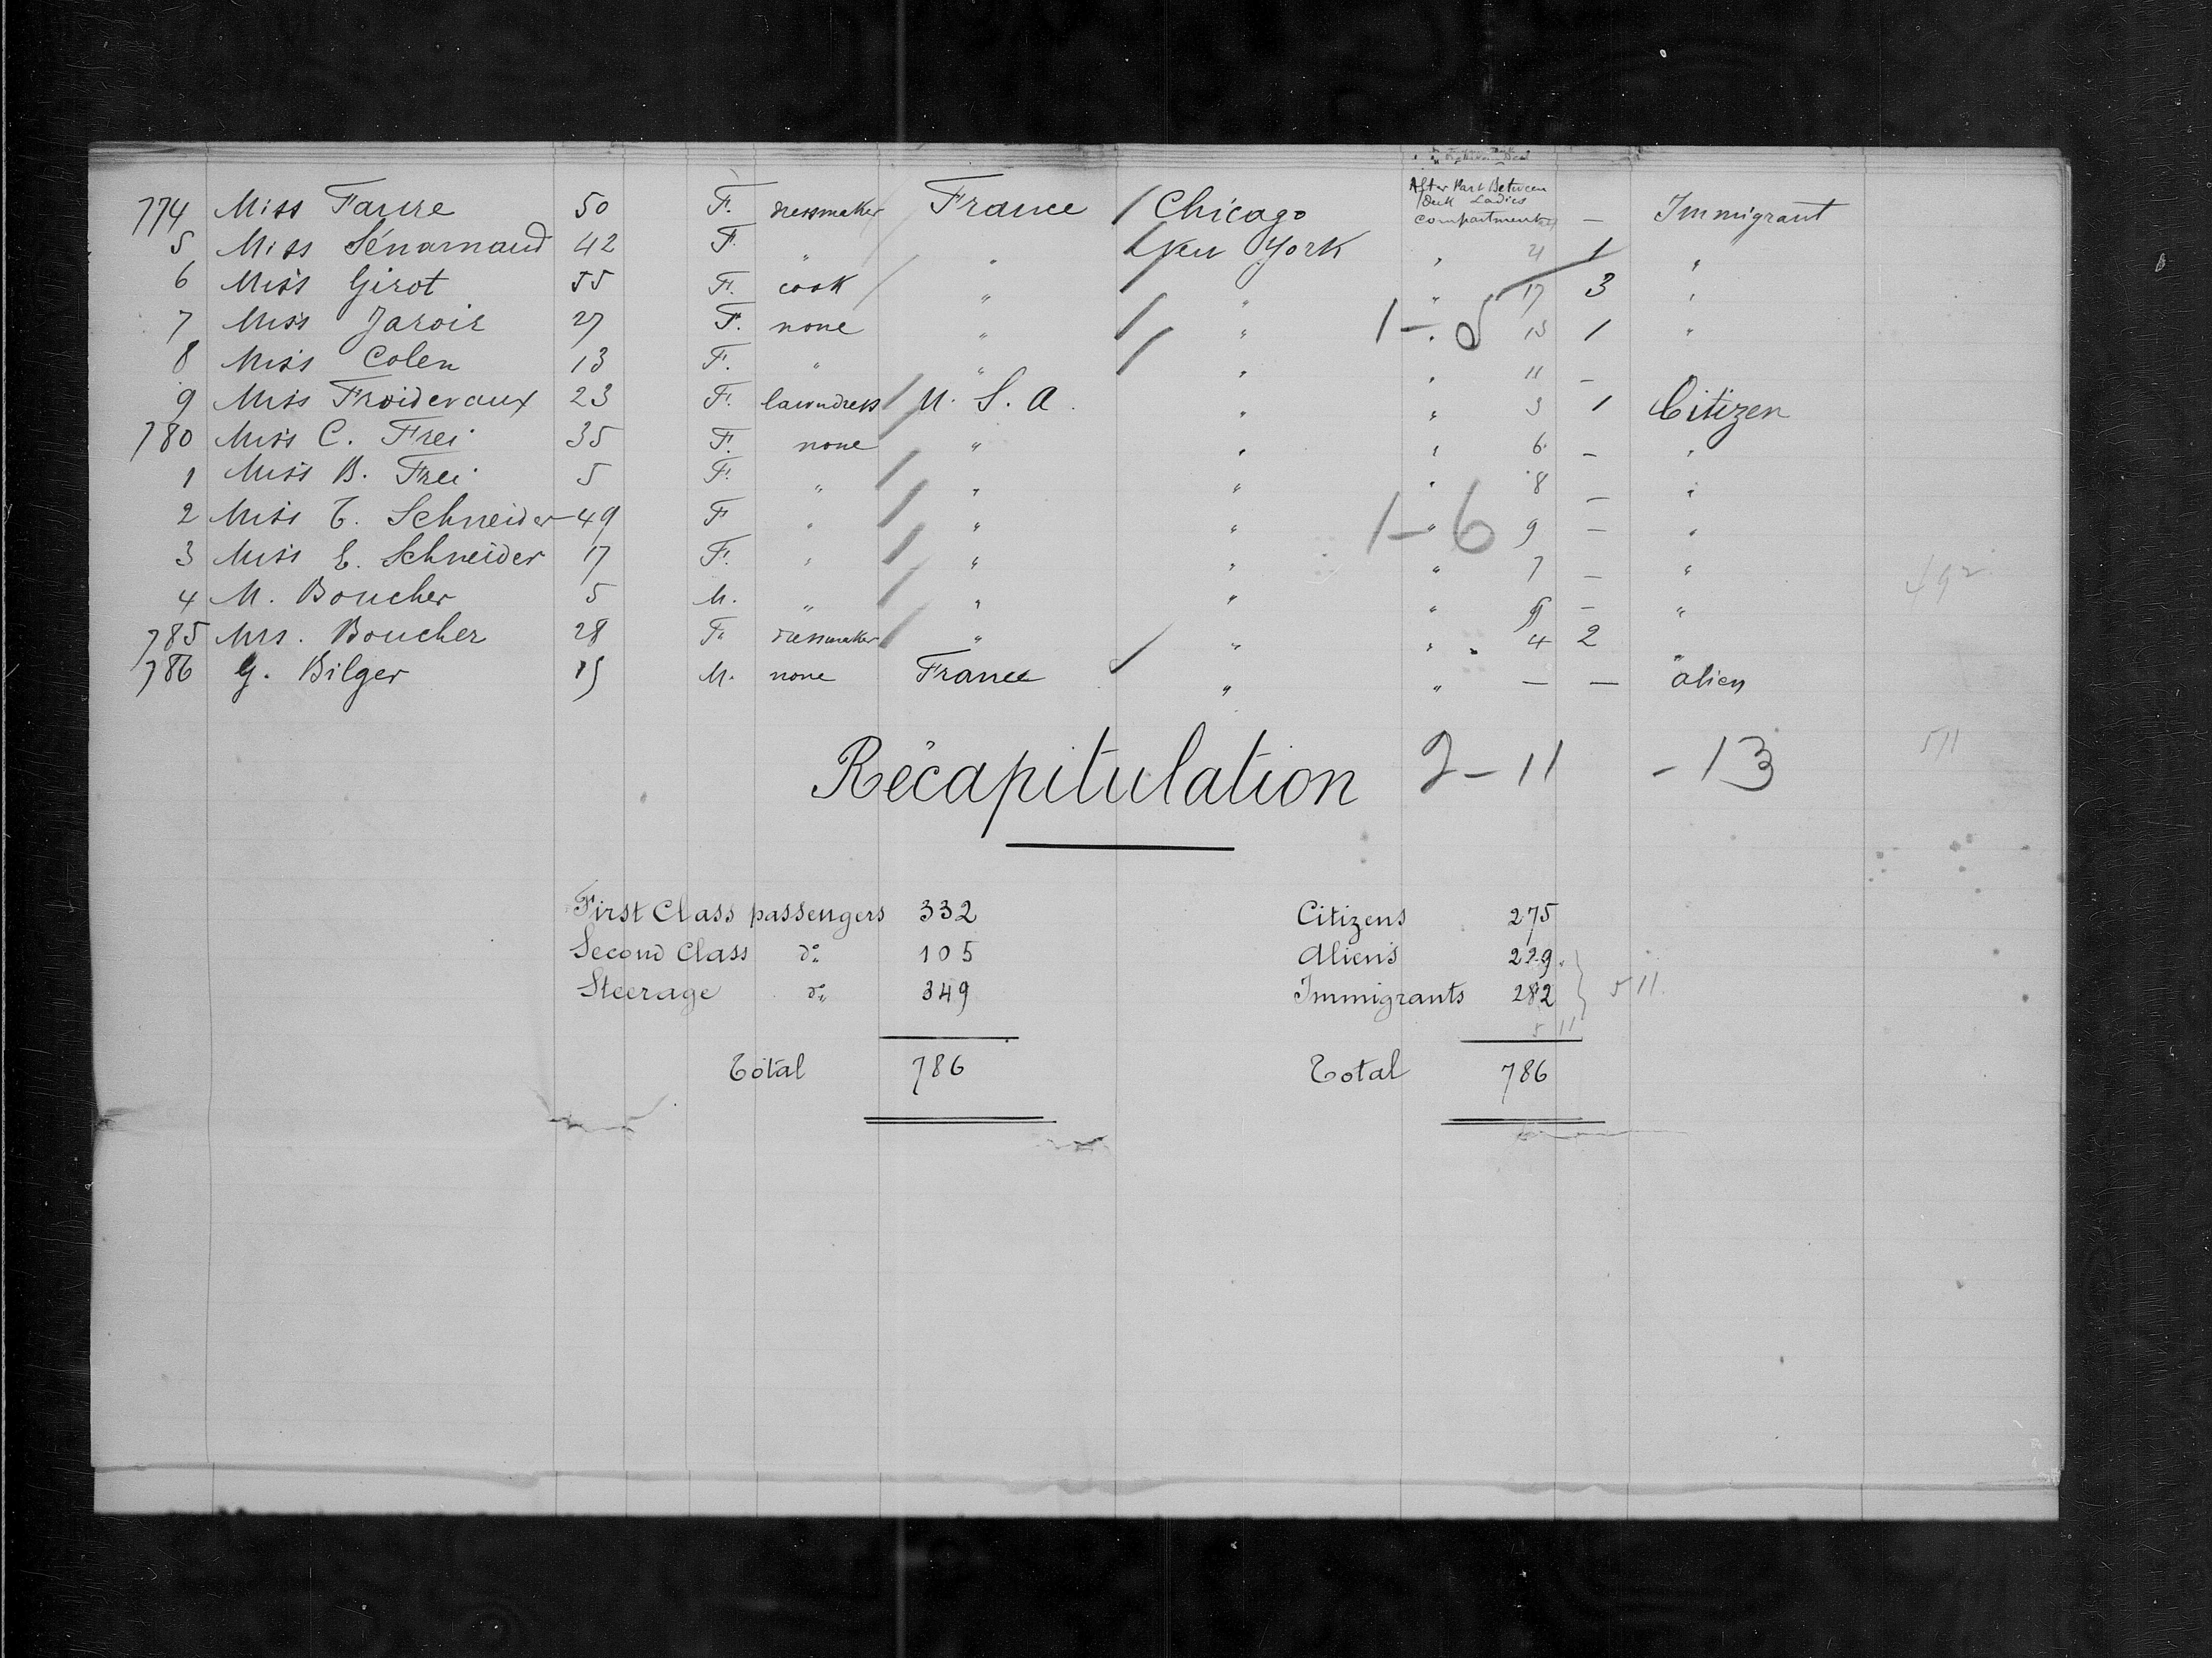 After Part Between
Deck Ladies
774 Miss Faure 50 F. dressmaker France Chicago compartment — Immigrant
5 Miss Sénarnaud 42 F. " " New York " 21 1 "
6 Miss Girot 55 F. cook " " " 17 3 "
7 Miss Jaroir 27 F. none " " 1 - 5 " 13 1 "
8 Miss Colen 13 F. " " " " 11 — "
9 Miss Froidevaux 23 F. lawndress U. S. A. " " 3 1 Citizen
780 Miss C. Frei 35 F. none " " " 6 — "
1 Miss B. Frei 5 F. " " " " 8 — "
2 Miss T. Schneider 49 F " " " 1-6 " 9 — "
3 Miss E. Schneider 17 F. " " " " 7 — "
492
4 M. Boucher 5 M. " " " " — "
785 Mrs. Boucher 28 F. dressmaker " " " 4 2 "
786 G. Bilger M. none France " " — — alien
Récapitulation 2 - 11 - 13 511
First Class passengers 332 Citizens 275
Second Class do 105 Aliens 229
Steerage do 349 Immigrants 282 } 511
511
Total 786 Total 786